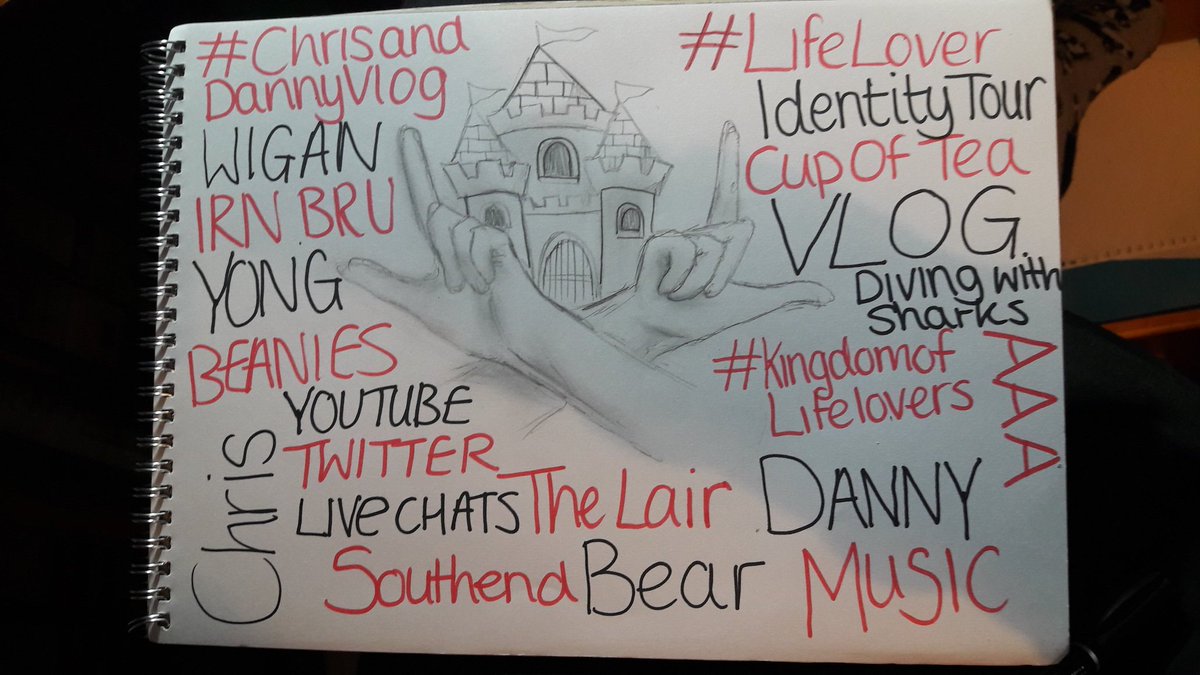 #Chrisand
DannyVlog
WIGAN
IRN BRU
YONG
BEANIES
YOUTUBE
TWITTER
LIVE CHATS
Chris
The Lair
Southend
Bear
#LifeLover
Identity Tour
Cup Of Tea
VLOG.
Diving with
Sharks
#Kingdomof
Lifelovers
AAA
DANNY
MUSIC